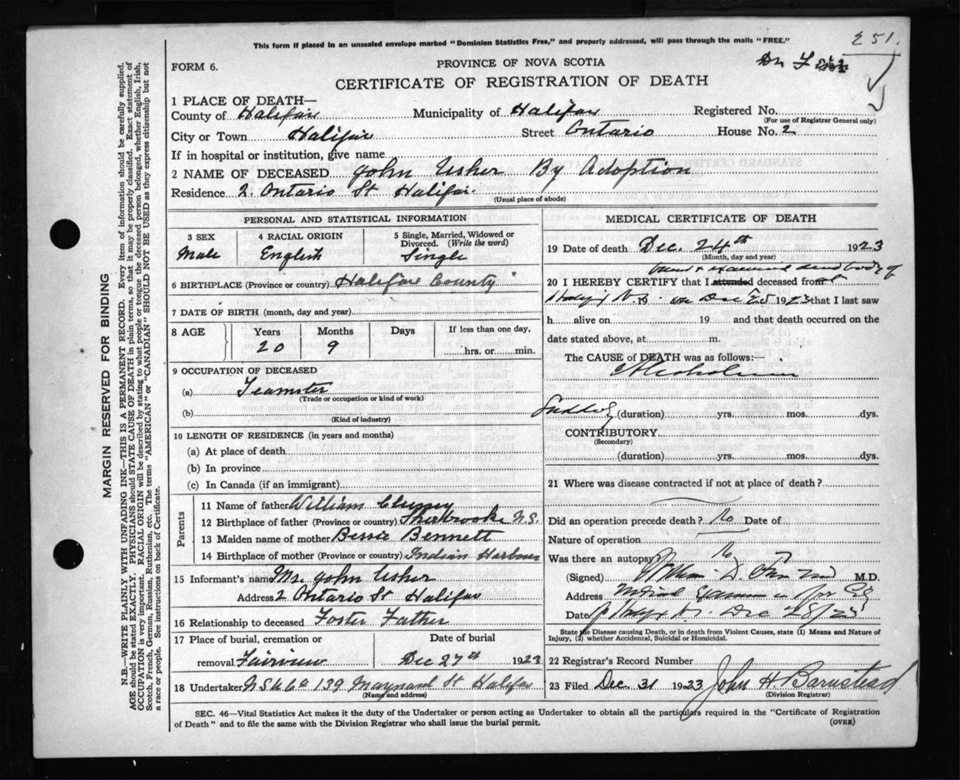 This form if placed in an unsealed envelope marked "Dominion Statistics Free," and properly addressed, will pass through the mails "FREE."
E 51.
FORM 6.
PROVINCE OF NOVA SCOTIA
CERTIFICATE OF REGISTRATION OF DEATH
MARGIN RESERVED FOR BINDING
N.B.—WRITE PLAINLY WITH UNFADING INK—THIS IS A PERMANENT RECORD. Every item of information should be carefully supplied.
AGE should be stated EXACTLY. PHYSICIANS should STATE CAUSE OF DEATH in plain terms, so that it may be properly classified. Exact statement of
OCCUPATION is very important. RACIAL ORIGIN will be described by stating to what people or tongue the deceased person belonged, whether English, Irish,
Scotch, French, German, Russian, Ruthenian, etc. The terms "AMERICAN" or "CANADIAN" SHOULD NOT BE USED as they express citizenship but not
a race or people. See instructions on back of Certificate.
1 PLACE OF DEATH—
County of Halifax Municipality of Halifax Registered No.
(For use of Registrar General only)
City or Town Halifax Street Ontario House No. 2
If in hospital or institution, give name
2 NAME OF DECEASED John Usher By Adoption
Residence 2 Ontario St Halifax
(Usual place of abode)
PERSONAL AND STATISTICAL INFORMATION
3 SEX 4 RACIAL ORIGIN 5 Single, Married, Widowed or Divorced. (Write the word)
Male English Single
6 BIRTHPLACE (Province or country) Halifax County
7 DATE OF BIRTH (month, day and year)
8 AGE Years Months Days If less than one day,
20 9 hrs. or min.
9 OCCUPATION OF DECEASED
(a) Teamster
(Trade or occupation or kind of work)
(b)
(Kind of industry)
10 LENGTH OF RESIDENCE (in years and months)
(a) At place of death
(b) In province
(c) In Canada (if an immigrant)
Parents
11 Name of father William
12 Birthplace of father (Province or country) Sherbrooke N.S.
13 Maiden name of mother Bessie Bennett
14 Birthplace of mother (Province or country) Indian Harbour
15 Informant's name Mr. John Usher
Address 2 Ontario St Halifax
16 Relationship to deceased Foster Father
17 Place of burial, cremation or Date of burial
removal Fairview Dec 27th 1923
18 Undertaker 139 Maynard St Halifax
(Name and address)
MEDICAL CERTIFICATE OF DEATH
19 Date of death Dec. 24th 1923
(Month, day and year)
viewed & examined dead body of
20 I HEREBY CERTIFY that I attended deceased from
Dec 25 1923 that I last saw
h alive on 19 and that death occurred on the
date stated above, at m.
The CAUSE OF DEATH was as follows:
Alcoholism
Suddenly (duration) yrs. mos. dys.
CONTRIBUTORY
(Secondary)
(duration) yrs. mos. dys.
21 Where was disease contracted if not at place of death?
Did an operation precede death? No Date of
Nature of operation
Was there an autopsy? No
(Signed) M.D.
Address Medical Examiner
Date Dec 28/23
State the Disease causing Death, or in death from Violent Causes, state (1) Means and Nature of
Injury, (2) whether Accidental, Suicidal or Homicidal.
22 Registrar's Record Number
23 Filed Dec 31 1923 John H. Barnstead
(Division Registrar)
SEC. 46—Vital Statistics Act makes it the duty of the Undertaker or person acting as Undertaker to obtain all the particulars required in the "Certificate of Registration
of Death" and to file the same with the Division Registrar who shall issue the burial permit. (OVER)